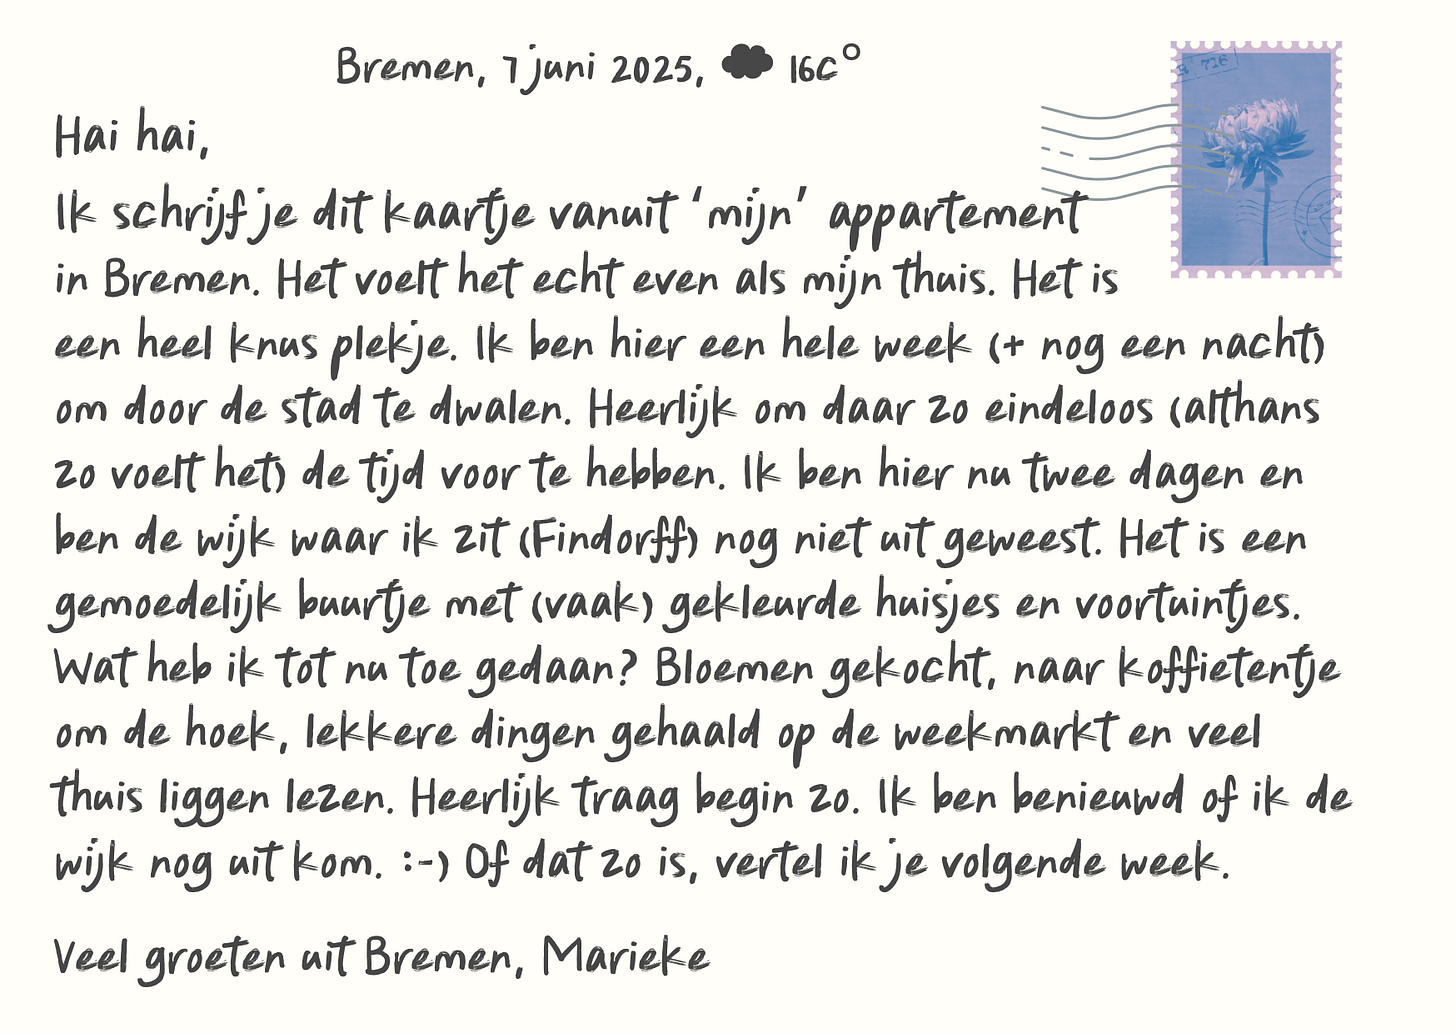 Bremen, 7 juni 2025, 16C°
R 716
Hai hai,
Ik schrijf je dit kaartje vanuit ‘mijn’ appartement
in Bremen. Het voelt het echt even als mijn thuis. Het is
een heel knus plekje. Ik ben hier een hele week (+ nog een nacht)
om door de stad te dwalen. Heerlijk om daar zo eindeloos (althans
zo voelt het) de tijd voor te hebben. Ik ben hier nu twee dagen en
ben de wijk waar ik zit (Findorff) nog niet uit geweest. Het is een
gemoedelijk buurtje met (vaak) gekleurde huisjes en voortuintjes.
Wat heb ik tot nu toe gedaan? Bloemen gekocht, naar koffietentje
om de hoek, lekkere dingen gehaald op de weekmarkt en veel
thuis liggen lezen. Heerlijk traag begin zo. Ik ben benieuwd of ik de
wijk nog uit kom. :-) Of dat zo is, vertel ik je volgende week.
Veel groeten uit Bremen, Marieke